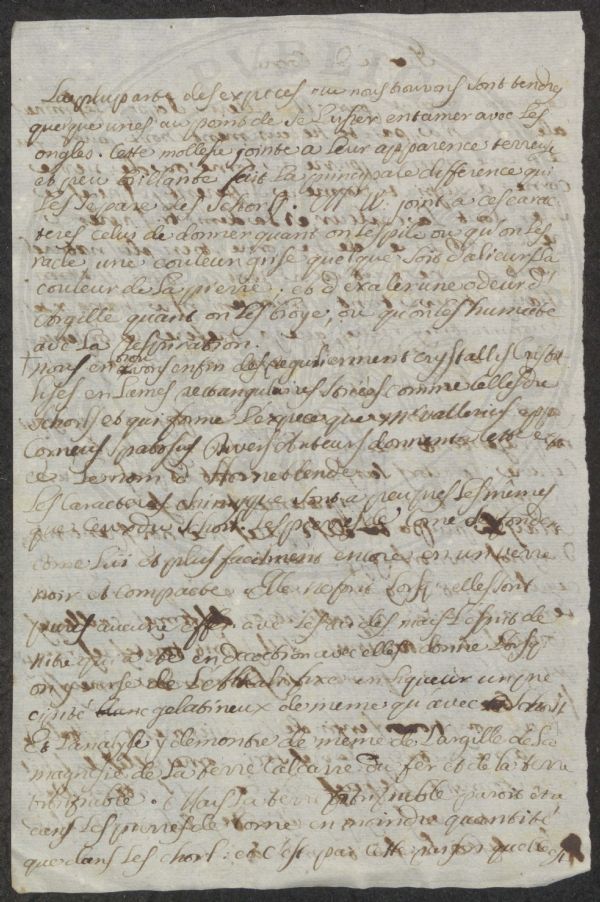 La pluparts des especes que nous trouvons sont tendres
quelque unes au point de se lesser entamer avec les
ongles. Cette mollesse jointe a leur apparence terreuse
et peu brillante fait la principale difference qui
les separe des Schorl. Mr W: joint a ces carac
teres celui de donner quant on les pile ou qu'on les
racle une couleur grise quelque soit d'alieurs la
couleur de la pierre. et d'exaler une odeur d'
argille quant on les broye, ou qu'on les humecte
avec la respiration.
nous en avons enfin de regulierement crystallis
lisés en lames rectangulaires striées comme celles du
Schorl et qui forme l'espece que Mr Vallerius app
Corneus spatosus divers auteurs donnent a cette es
ce le nom d'Hornestende
Les caracteres chimique sont a peu pres les mêmes
que ceux du Schorl. Les pierres de corne se fonde
come lui et plus facilement encore en un verre
noir et compacte. Elle ne font lorsqu'elles sont
pures aucune effer avec les acides mais l'esprit de
nitre qui a été en decoction avec elles donne lorsq
on y verse de l'alkali fixe en liqueur un pre
cipité gelatineux de meme qu'avec Schorl
Et l'analyse y demontre de meme de l'argille de la
magnesie de la terre calcaire du fer et de la terre
vitrifiable. Mais la terre vitrifiable paroit être
dans les pierres de corne en moindre quantité
que dans les chorl: et c'est par cette raison que